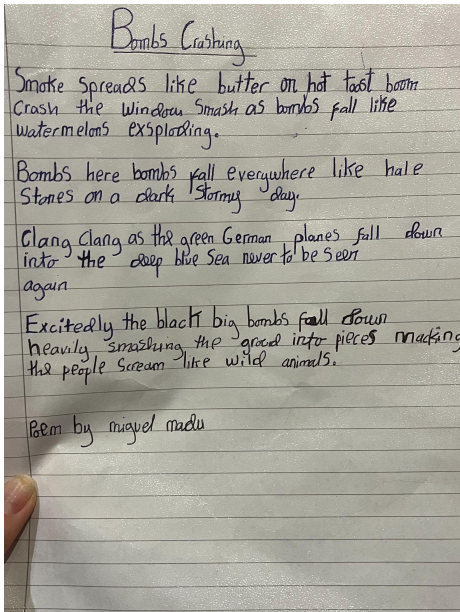 Bombs Crashing
Smoke Spreads like butter on hot toast boom
Crash the window Smash as bombs fall like
watermelons exsploding.
Bombs here bombs fall everywhere like hale
Stones on a dark Stormy day.
Clang Clang as the green German planes fall down
into the deep blue Sea never to be seen
again
Excitedly the black big bombs fall down
heavily smashing the groud into pieces macking
the people Scream like wild animals.
Poem by miguel madu